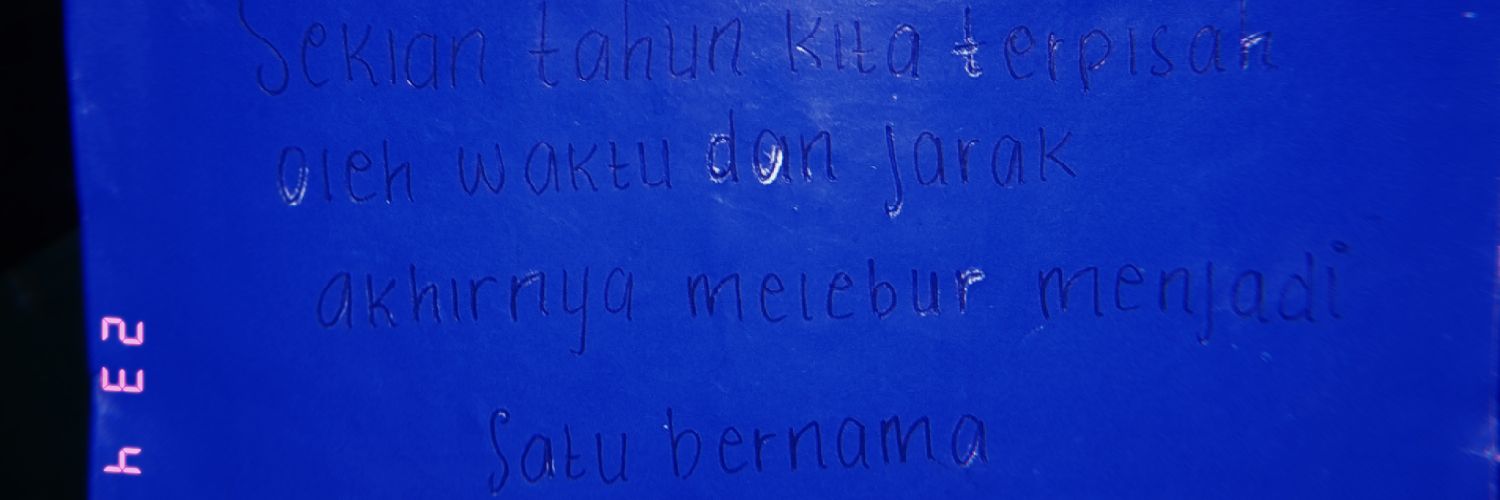 Sekian tahun kita terpisah
oleh waktu dan jarak
akhirnya melebur menjadi
Satu bernama